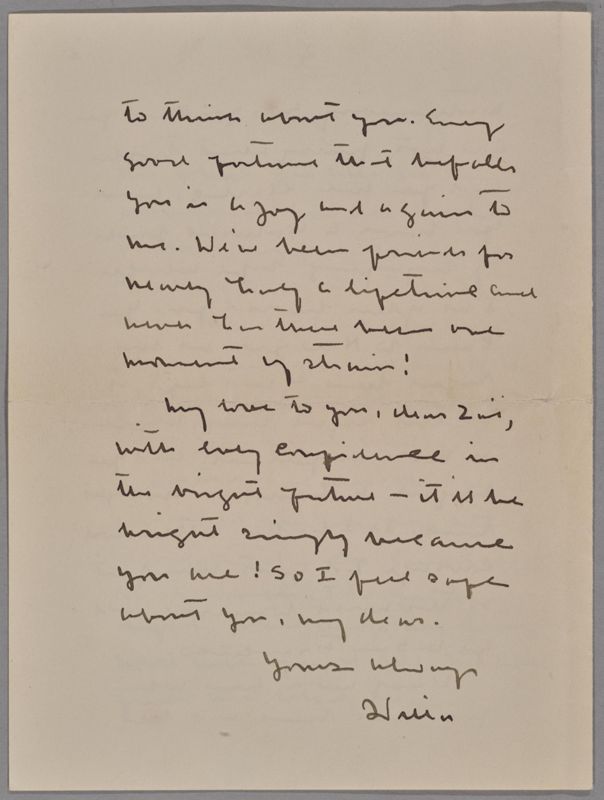 to think about you. Every
good fortune that befalls
you is a joy and a gain to
me. We've been friends for
nearly half a lifetime and
never has there been one
moment of strain!
My love to you, dear Zoë,
with every confidence in
the bright future – it'll be
bright simply because
you are! So I feel safe
about you, my dear.
Yours always
Willa